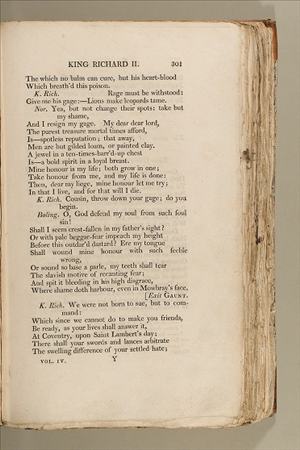 KING RICHARD II. 301
The which no balm can cure, but his heart-blood
Which breath'd this poison.
K. Rich. Rage must be withstood:
Give me his gage:—Lions make leopards tame.
Nor. Yea, but not change their spots: take but
my shame,
And I resign my gage. My dear dear lord,
The purest treasure mortal times afford,
Is—spotless reputation; that away,
Men are but gilded loam, or painted clay.
A jewel in a ten-times-barr'd-up chest
Is—a bold spirit in a loyal breast.
Mine honour is my life; both grow in one;
Take honour from me, and my life is done:
Then, dear my liege, mine honour let me try;
In that I live, and for that will I die.
K. Rich. Cousin, throw down your gage; do you
begin.
Boling. O, God defend my soul from such foul
sin!
Shall I seem crest-fallen in my father's sight?
Or with pale beggar-fear impeach my height
Before this outdar'd dastard? Ere my tongue
Shall wound mine honour with such feeble
wrong,
Or sound so base a parle, my teeth shall tear
The slavish motive of recanting fear;
And spit it bleeding in his high disgrace,
Where shame doth harbour, even in Mowbray's face.
[Exit GAUNT.
K. Rich. We were not born to sue, but to com-
mand:
Which since we cannot do to make you friends,
Be ready, as your lives shall answer it,
At Coventry, upon Saint Lambert's day;
There shall your swords and lances arbitrate
The swelling difference of your settled hate;
VOL. IV. Y